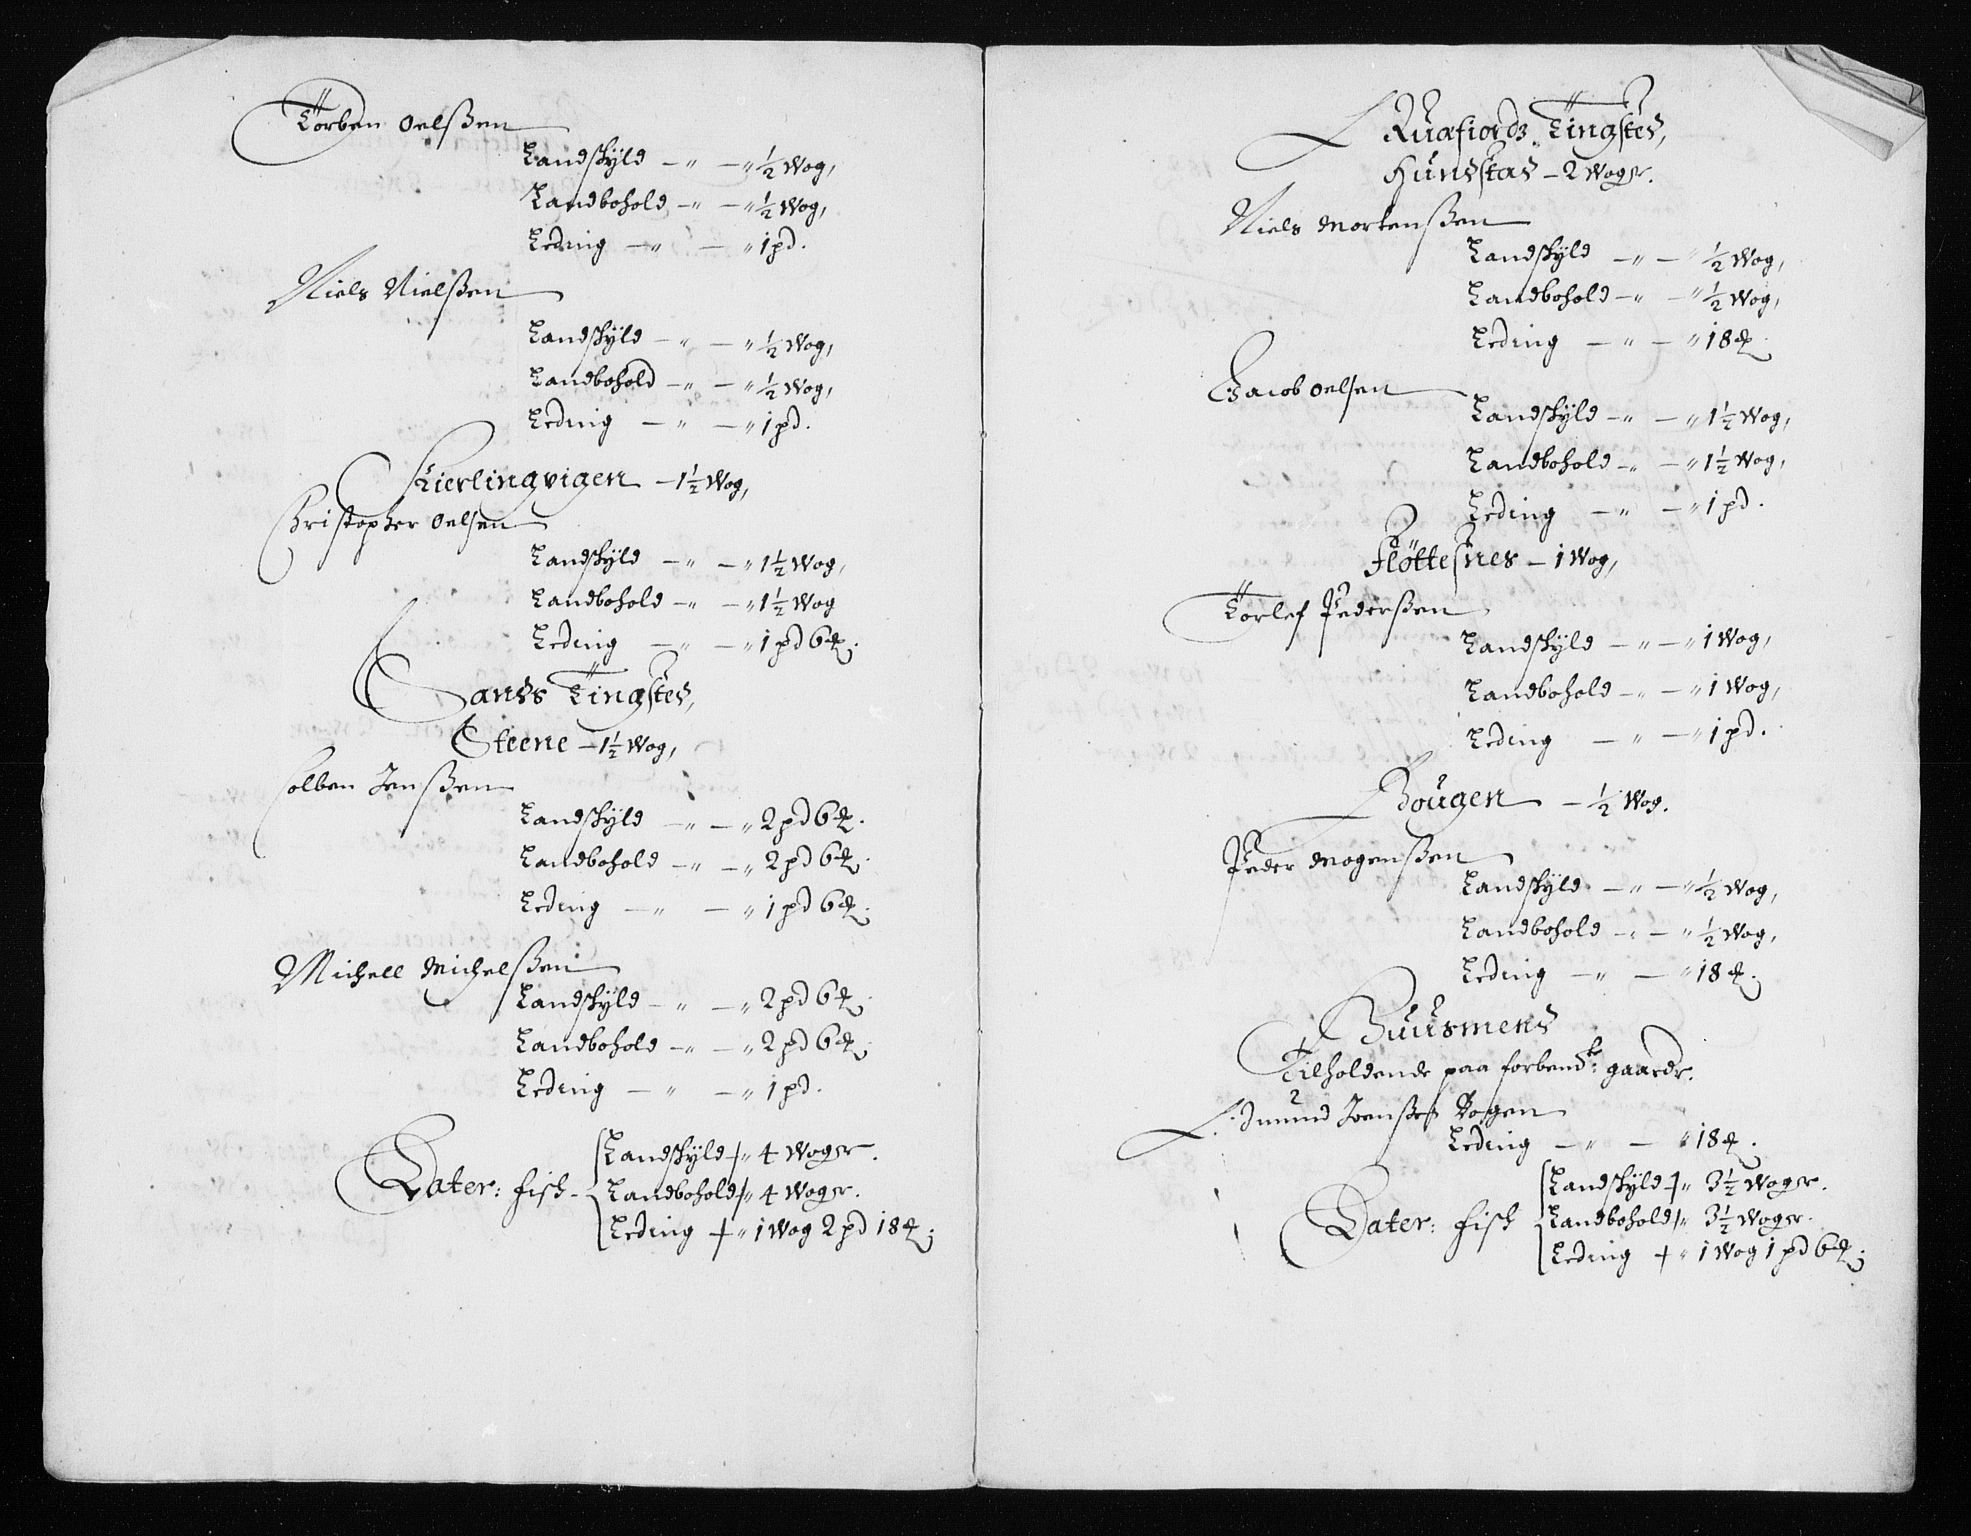 Torben Oelßen
Landskyld — " — " ½ Wog,
Landbohold — " — " ½ Wog,
Leding — " — " 1 pd.
Niels Nielßen
Landskÿld — " — " ½ Wog,
Landbohold — " — " ½ Wog,
Leding — " — " 1 pd.
Kierlingvigen — 1½ Wog,
Christopher Oelsen
Landskÿld — " — " 1½ Wog,
Landbohold — " — " 1½ Wog
Leding — " — " 1 pd 6 ℔.
Sands Tingsted,
Steene — 1½ Wog,
Colben Jenßen
Landskÿld — " — " 2 pd 6 ℔.
Landbohold — " — " 2 pd 6 ℔.
Leding — " — " 1 pd 6 ℔.
Michell Michelßen
Landskÿld — " — " 2 pd 6 ℔.
Landbohold — " — " 2 pd 6 ℔.
Leding — " — " 1 pd.
Landskÿld + " 4 Woger.
Later: fisk - Landbohold + " 4 Woger.
Leding + " 1 Wog 2 pd 18 ℔.
Quæfiords Tingsted,
Hundstad — 2 Woger.
Niels Mortenßen
Landskÿld — " — " ½ Wog,
Landbohold — " — " ½ Wog,
Leding — " — " 18 ℔.
Jacob Oelsen
Landskÿld — " — " 1½ Wog,
Landbohold — " — " 1½ Wog,
Leding — " — " 1 pd.
Fløttesnes — 1 Wog,
Torlef Pederßen
Landskÿld — " — " 1 Wog,
Landbohold — " — " 1 Wog,
Leding — " — " 1 pd.
Bougen — ½ Wog.
Peder Mogenßen
Landskÿld — " — " ½ Wog,
Landbohold — " — " ½ Wog,
Leding — " — " 18 ℔.
Huusmend
Tilholdende paa forbend.te gaarde.
Amund Joenßen Bogen
Leding — " — " 18 ℔.
Landskÿld + " 3½ Woger.
Later: fisk Landbohold + " 3½ Woger.
Leding + " 1 Wog 1 pd 6 ℔.